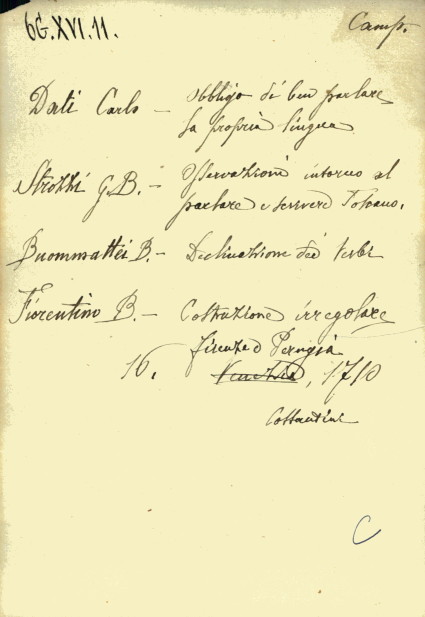 6G.XVI.11.
Camp.
Dati Carlo — Obbligo di ben parlare
la propria lingua
Strozzi G.B. — Osservazioni intorno al
parlare e scrivere Toscano.
Buommattei B. — Declinazione dei verbi
Fiorentino B. — Costruzione irregolare
Firenze e Perugia
16. Venezia, 1710
Costantini
C